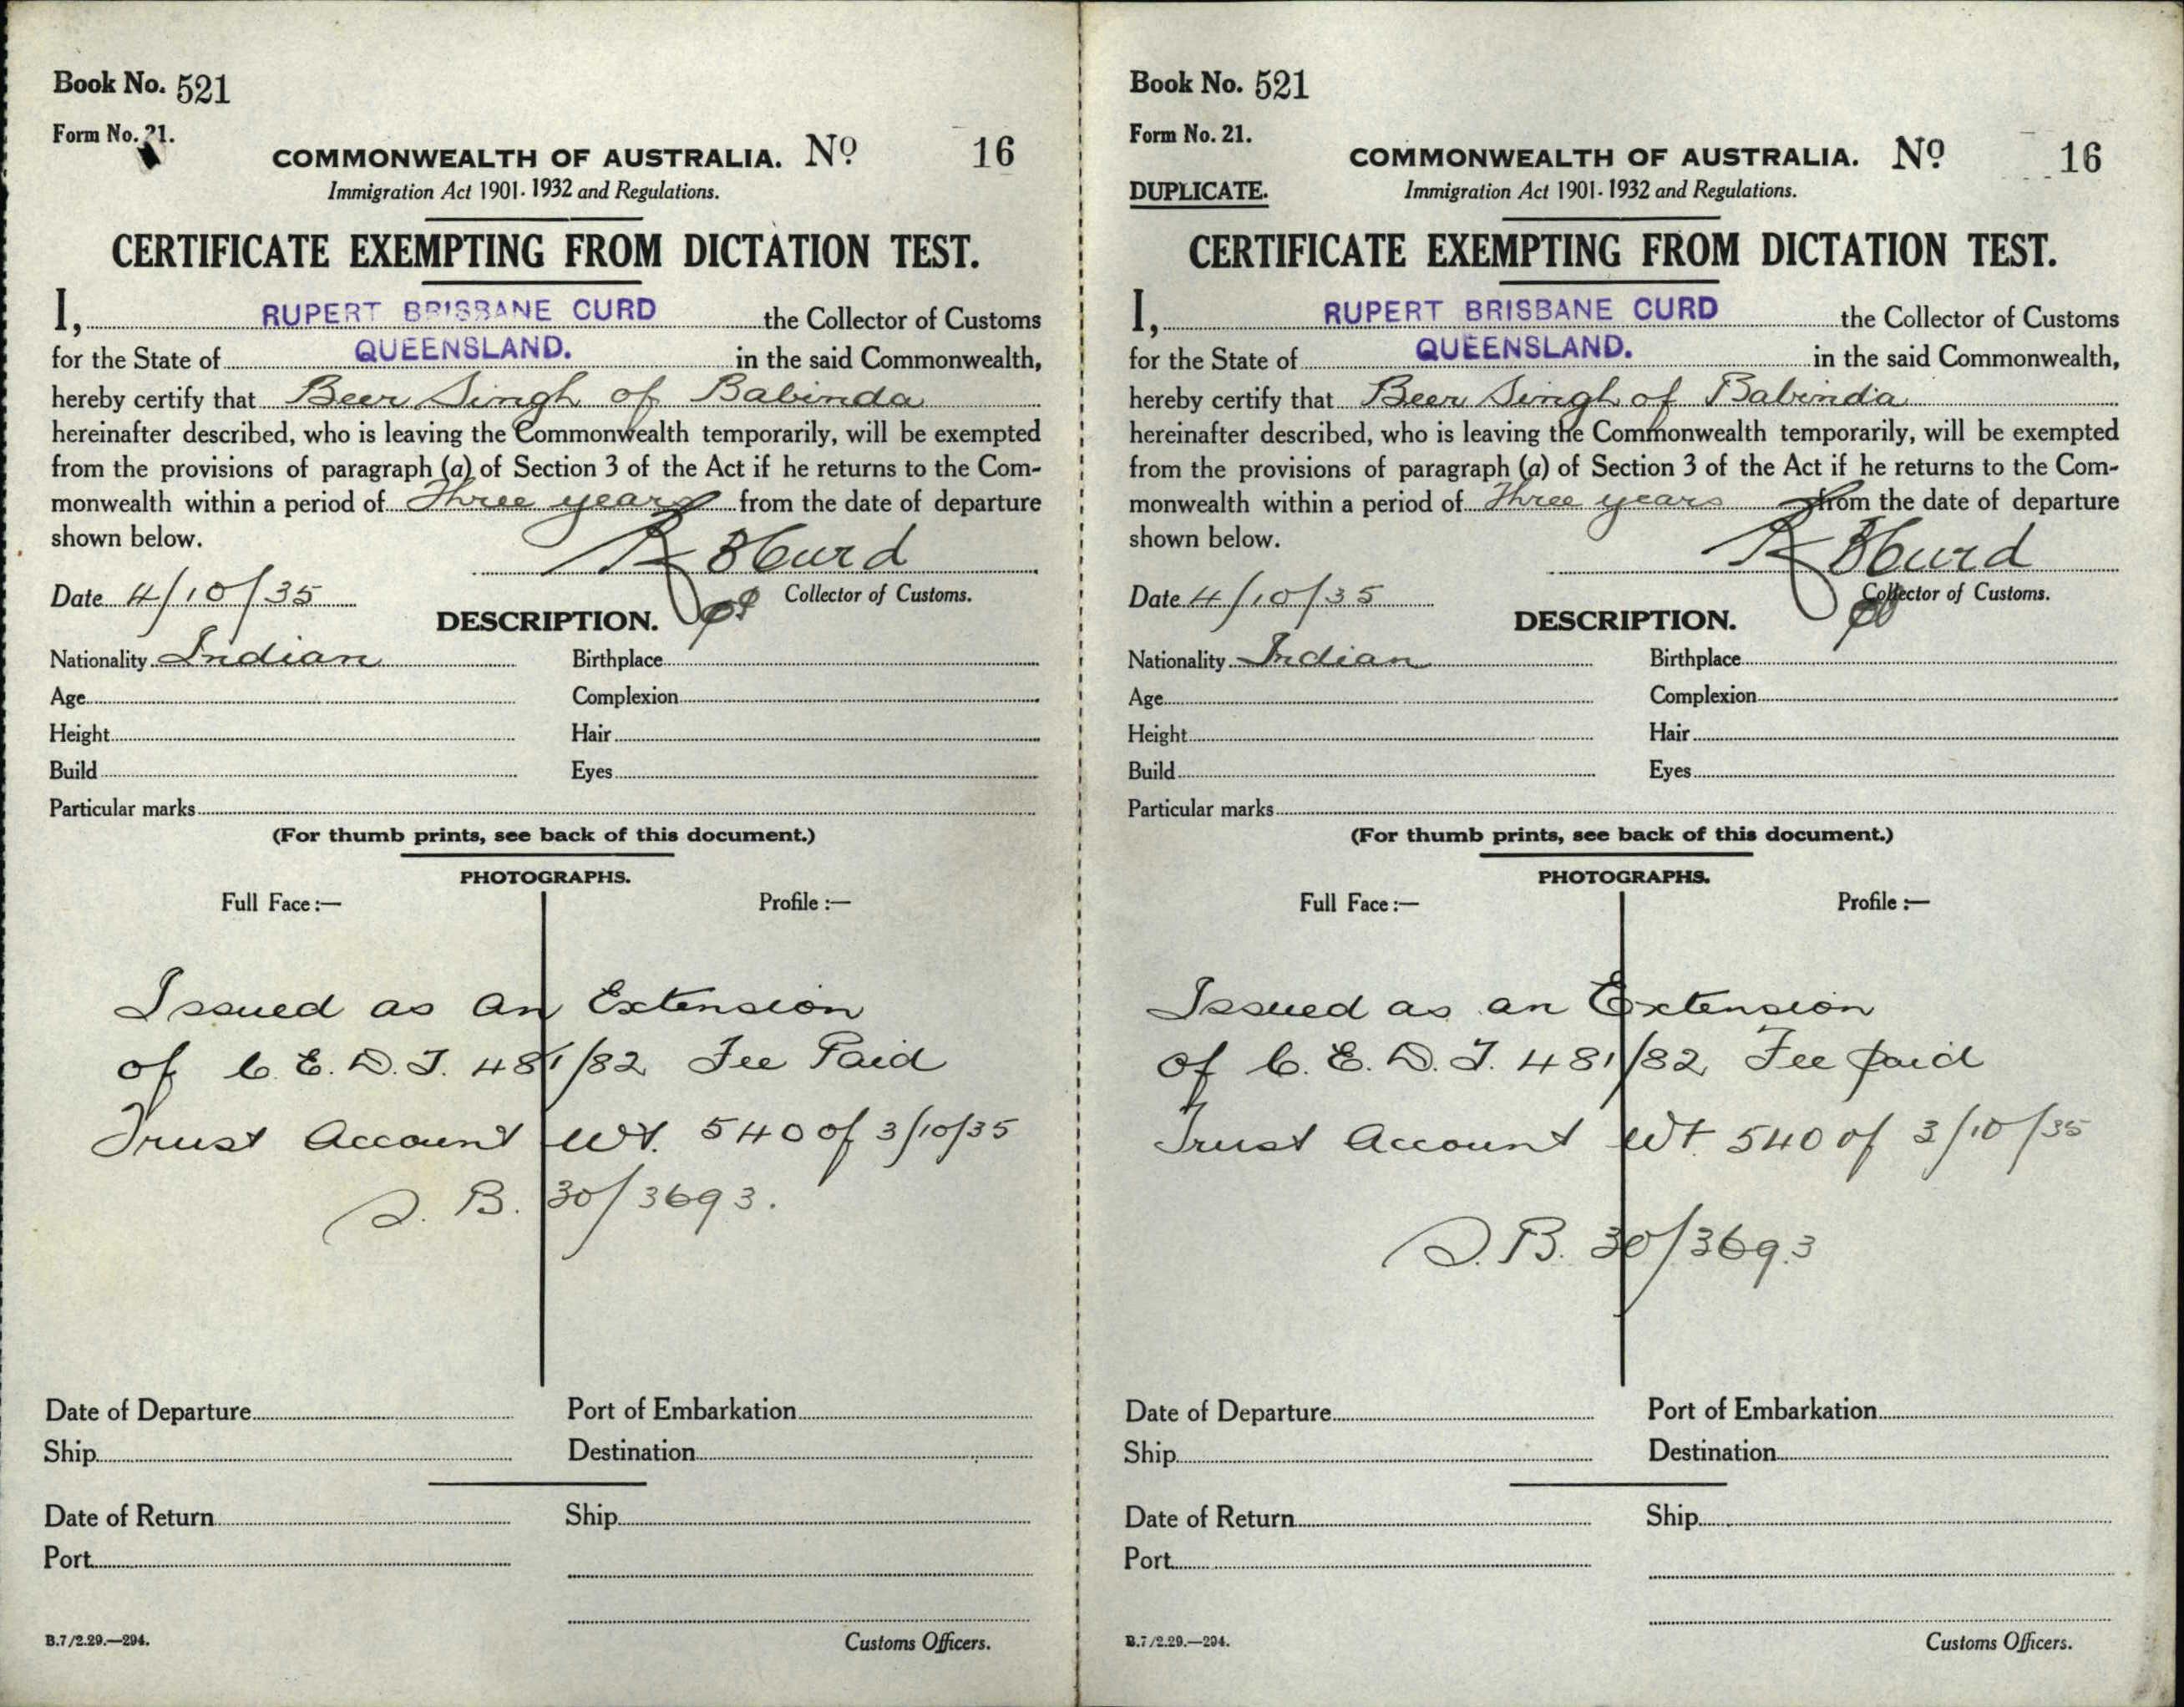 Book No. 521
Form No. 21.
COMMONWEALTH OF AUSTRALIA. No 16
Immigration Act 1901-1932 and Regulations.
CERTIFICATE EXEMPTING FROM DICTATION TEST.
I, RUPERT BRISBANE CURD the Collector of Customs
for the State of QUEENSLAND. in the said Commonwealth,
hereby certify that Beer Singh of Babinda
hereinafter described, who is leaving the Commonwealth temporarily, will be exempted
from the provisions of paragraph (a) of Section 3 of the Act if he returns to the Com-
monwealth within a period of Three years from the date of departure
shown below.
R B Curd
Date 4/10/35 Collector of Customs.
DESCRIPTION.
Nationality Indian Birthplace
Age Complexion
Height Hair
Build Eyes
Particular marks
(For thumb prints, see back of this document.)
PHOTOGRAPHS.
Full Face :— Profile :—
Issued as an Extension
of C. E. D. T. 481/82 Fee Paid
Trust Account Wt. 540 of 3/10/35
B. 30/3693.
Date of Departure Port of Embarkation
Ship Destination
Date of Return Ship
Port
B.7/2.29.—294. Customs Officers.
Book No. 521
Form No. 21.
COMMONWEALTH OF AUSTRALIA. No 16
DUPLICATE. Immigration Act 1901-1932 and Regulations.
CERTIFICATE EXEMPTING FROM DICTATION TEST.
I, RUPERT BRISBANE CURD the Collector of Customs
for the State of QUEENSLAND. in the said Commonwealth,
hereby certify that Beer Singh of Babinda
hereinafter described, who is leaving the Commonwealth temporarily, will be exempted
from the provisions of paragraph (a) of Section 3 of the Act if he returns to the Com-
monwealth within a period of Three years from the date of departure
shown below.
R B Curd
Date 4/10/35 Collector of Customs.
DESCRIPTION.
Nationality Indian Birthplace
Age Complexion
Height Hair
Build Eyes
Particular marks
(For thumb prints, see back of this document.)
PHOTOGRAPHS.
Full Face :— Profile :—
Issued as an Extension
of C. E. D. T. 481/82 Fee paid
Trust Account Wt 540 of 3/10/35
B. 30/3693
Date of Departure Port of Embarkation
Ship Destination
Date of Return Ship
Port
B.7/2.29.—294. Customs Officers.